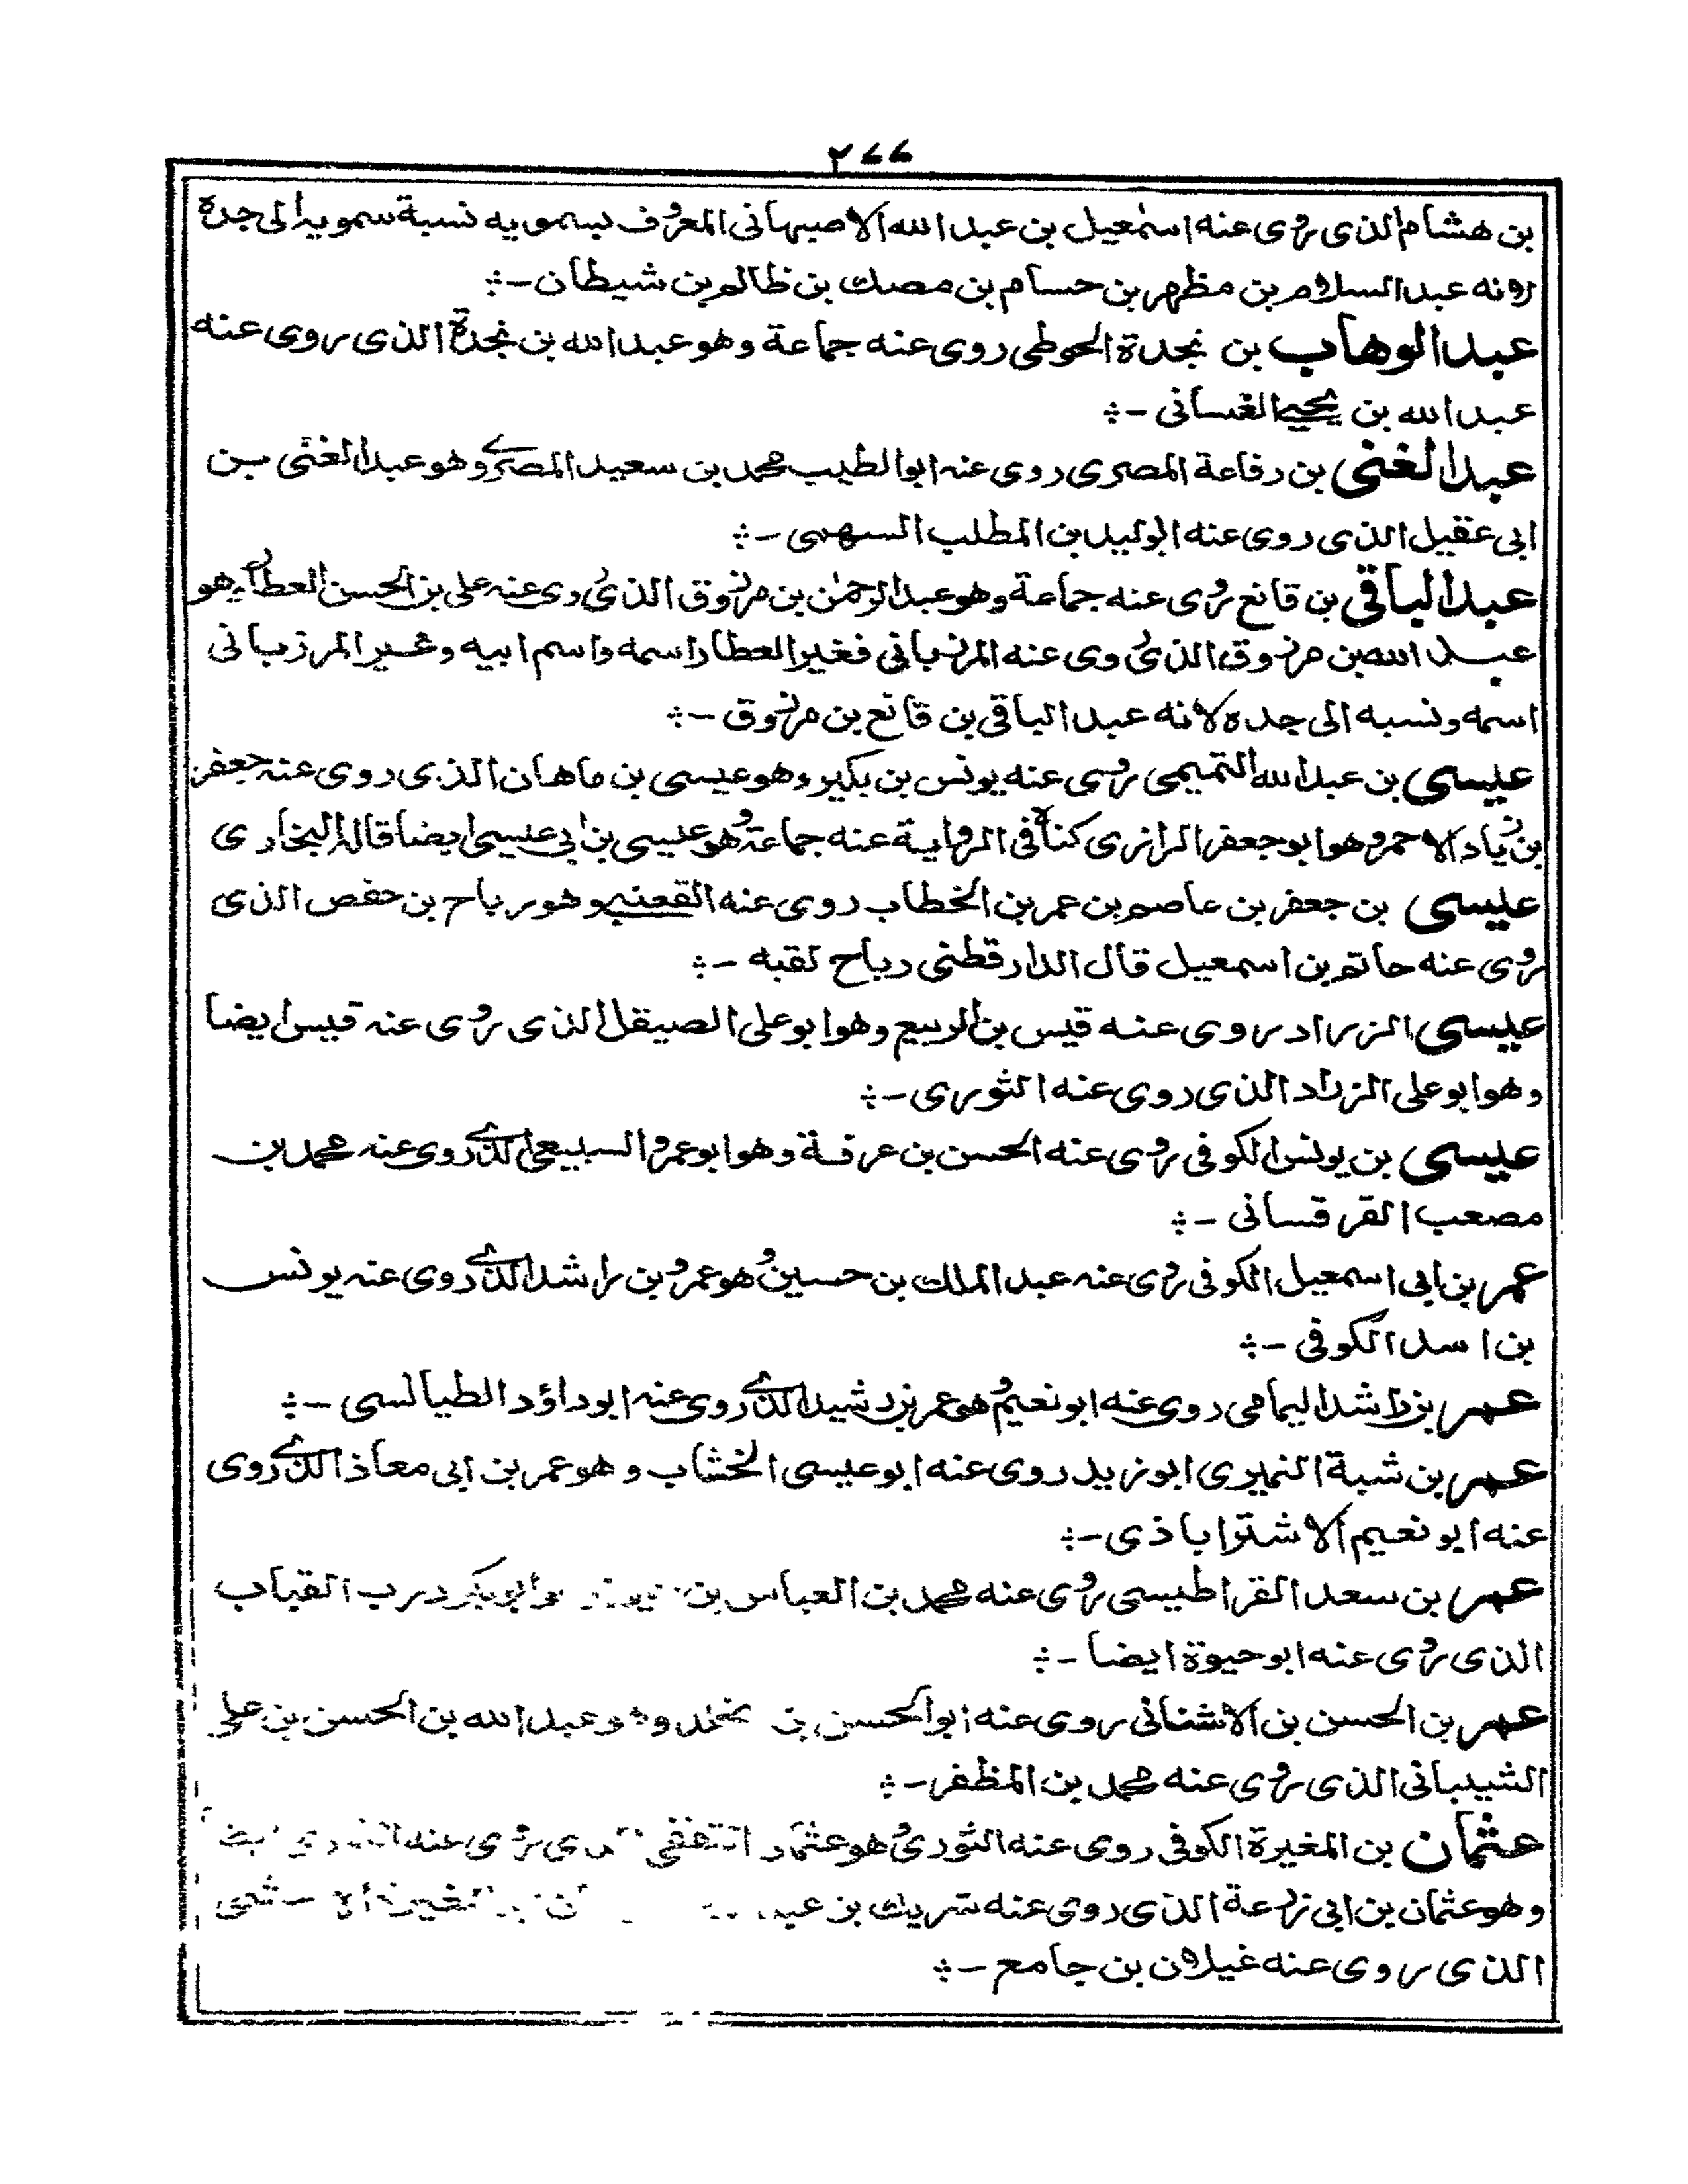 ٢٦٦
بن هشام الذى روى عنه اسمٰعيل بن عبد الله الاصبهانى المعروف بسمويه نسبة سمويه الى جده
لانه عبد السلام بن مظهر بن حسام بن مصك بن ظالم بن شيطان -
عبد الوهاب بن نجدة الحوطى روى عنه جماعة وهو عبد الله بن نجدة الذى روى عنه
عبد الله بن يحيى الغسانى -
عبد الغنى بن رفاعة المصرى روى عنه ابو الطيب محمد بن سعيد المصرى وهو عبد الغنى بن
ابى عقيل الذى روى عنه الوليد بن المطلب السهمى -
عبد الباقى بن قانع روى عنه جماعة وهو عبد الرحمٰن بن مرزوق الذى روى عنه على بن الحسن العطار وهو
عبد الله بن مرزوق الذى روى عنه المرزبانى فغير العطار اسمه واسم ابيه وغير المرزبانى
اسمه ونسبه الى جده لانه عبد الباقى بن قانع بن مرزوق -
عيسى بن عبد الله التميمى روى عنه يونس بن بكير وهو عيسى بن ماهان الذى روى عنه جعفر
بن زياد الاحمر وهو ابو جعفر الرازى كناه فى الرواية عنه جماعة وهو عيسى بن ابى عيسى ايضا قاله البخارى
عيسى بن جعفر بن عاصم بن عمر بن الخطاب روى عنه القعنبى وهو رباح بن حفص الذى
روى عنه حاتم بن اسمعيل قال الدارقطنى رباح لقبه -
عيسى الزراد روى عنه قيس بن الربيع وهو ابو على الصيقل الذى روى عنه قيس ايضا
وهو ابو على الزراد الذى روى عنه الثورى -
عيسى بن يونس الكوفى روى عنه الحسن بن عرفة وهو ابو عمرو السبيعى الذى روى عنه محمد بن
مصعب القرقسانى -
عمر بن ابى اسمعيل الكوفى روى عنه عبد الملك بن حسين وهو عمرو بن راشد الذى روى عنه يونس
بن اسد الكوفى -
عمر بن راشد اليمامى روى عنه ابو نعيم وهو عمر بن رشيد الذى روى عنه ابو داؤد الطيالسى -
عمر بن شبة النميرى ابو زيد روى عنه ابو عيسى الخشاب وهو عمر بن ابى معاذ الذى روى
عنه ابو نعيم الاشتراباذى -
عمر بن سعد القراطيسى روى عنه محمد بن العباس بن وابو بكر درب القباب
الذى روى عنه ابو حيوة ايضا -
عمر بن الحسن بن الاشنانى روى عنه ابو الحسن بن مخلد وهو عبد الله بن الحسن بن على
الشيبانى الذى روى عنه محمد بن المظفر -
عثمان بن المغيرة الكوفى روى عنه الثورى وهو عثمان الثقفى الذى روى عنه
وهو عثمان بن ابى زرعة الذى روى عنه شريك بن
الذى روى عنه غيلان بن جامع -